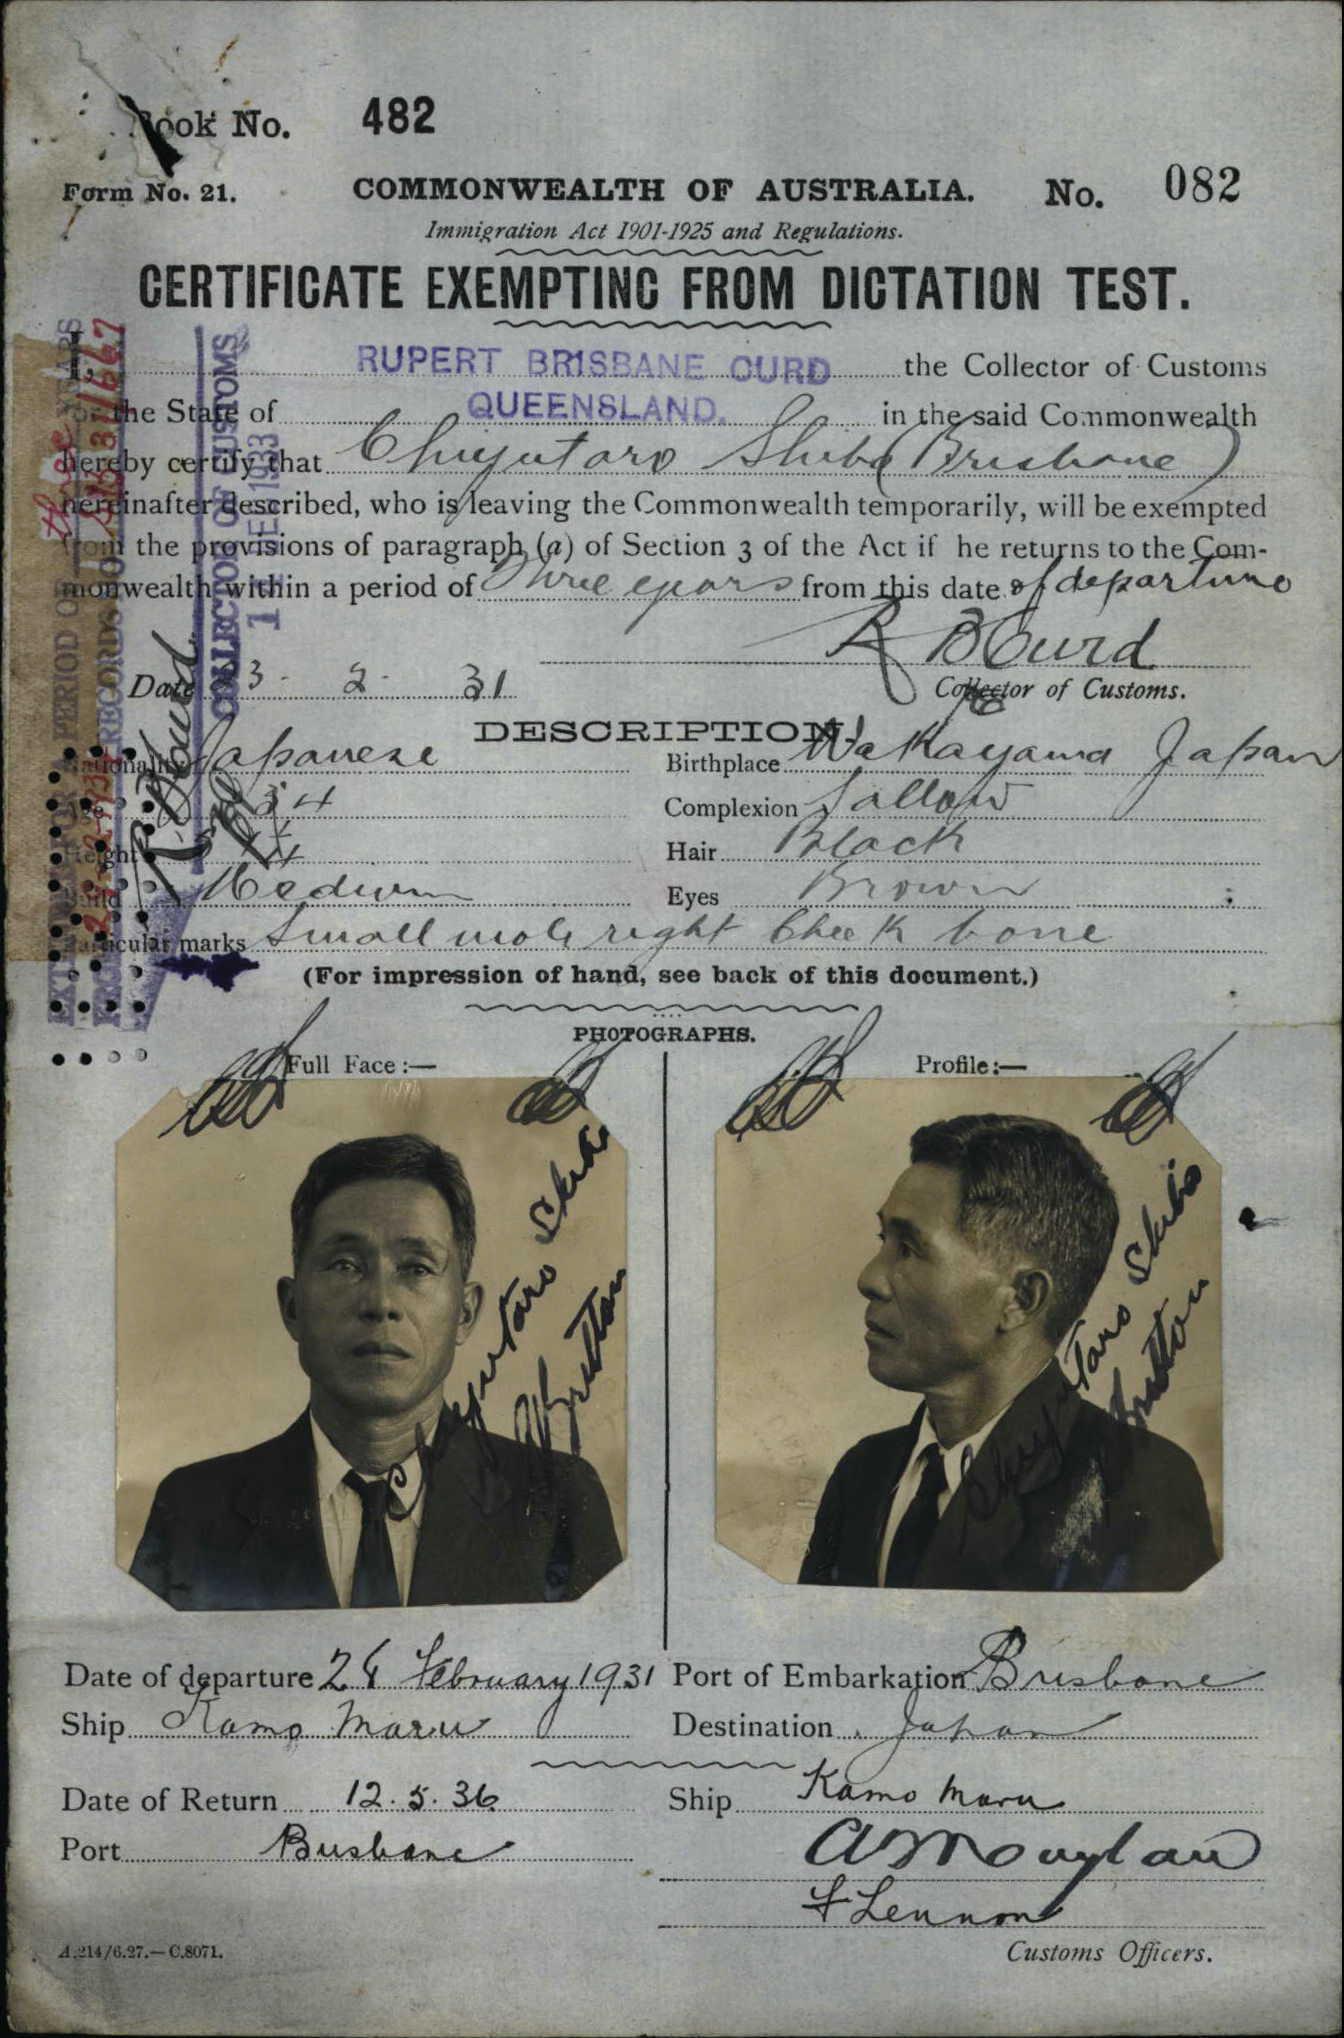 Book No. 482
Form No. 21. COMMONWEALTH OF AUSTRALIA. No. 082
Immigration Act 1901-1925 and Regulations.
CERTIFICATE EXEMPTING FROM DICTATION TEST.
I, RUPERT BRISBANE CURD the Collector of Customs
for the State of QUEENSLAND. in the said Commonwealth
hereby certify that Chiyutaro Shiba (Brisbane)
hereinafter described, who is leaving the Commonwealth temporarily, will be exempted
from the provisions of paragraph (a) of Section 3 of the Act if he returns to the Com-
monwealth within a period of Three years from this date of departure
R B Curd
Date 23 - 2 - 31 Collector of Customs.
DESCRIPTION.
Nationality Japanese Birthplace Wakayama Japan
Age 54 Complexion Sallow
Height Hair Black
Build Medium Eyes Brown
Particular marks Small mole right Cheek bone
(For impression of hand, see back of this document.)
PHOTOGRAPHS.
Full Face :— Profile :—
Chiyutaro Shiba
Britton
Chiyutaro Shiba
Britton
EXTENDED FOR A PERIOD OF three YEARS
COLLECTOR OF CUSTOMS
R B Curd
Date of departure February 1931 Port of Embarkation Brisbane
Ship Kamo Maru Destination Japan
Date of Return 12. 5. 36 Ship Kamo Maru
Port Brisbane
F Lennon
A.214/6.27.—C.8071. Customs Officers.